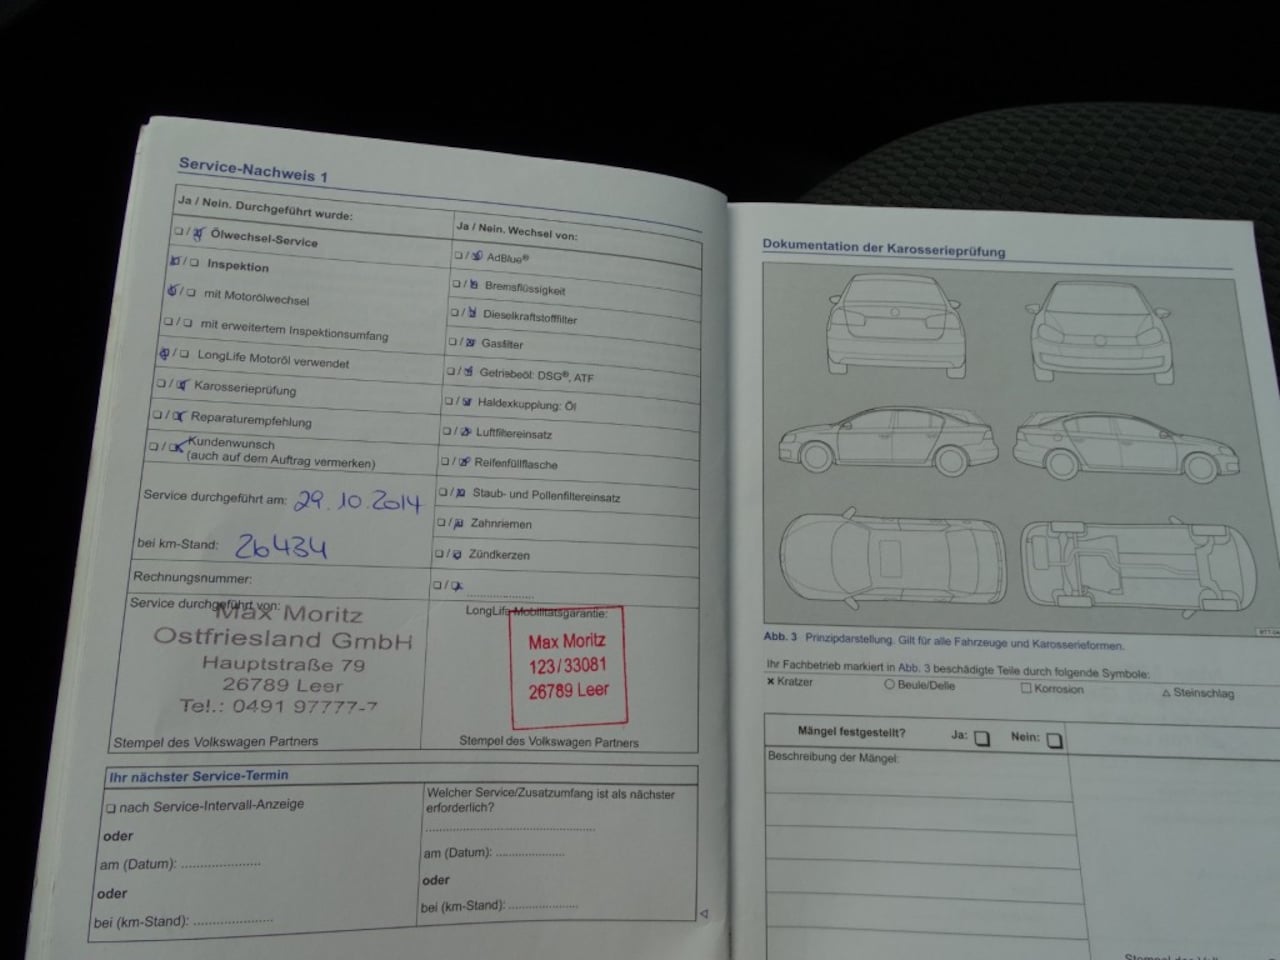 Service-Nachweis 1
Ja / Nein. Durchgeführt wurde:
Ölwechsel-Service
Inspektion
mit Motorölwechsel
mit erweitertem Inspektionsumfang
LongLife Motoröl verwendet
Karosserieprüfung
Reparaturempfehlung
Kundenwunsch
(auch auf dem Auftrag vermerken)
Service durchgeführt am: 29.10.2014
bei km-Stand: 26434
Rechnungsnummer:
Service durchgeführt von:
Max Moritz
Ostfriesland GmbH
Hauptstraße 79
26789 Leer
Tel.: 0491 97777-7
Stempel des Volkswagen Partners
Ja / Nein. Wechsel von:
AdBlue®
Bremsflüssigkeit
Dieselkraftstofffilter
Gasfilter
Getriebeöl: DSG®, ATF
Haldexkupplung: Öl
Luftfiltereinsatz
Reifenfüllflasche
Staub- und Pollenfiltereinsatz
Zahnriemen
Zündkerzen
LongLife Mobilitätsgarantie:
Max Moritz
123/33081
26789 Leer
Stempel des Volkswagen Partners
Ihr nächster Service-Termin
nach Service-Intervall-Anzeige
oder
am (Datum): ....................
oder
bei (km-Stand): ....................
Welcher Service/Zusatzumfang ist als nächster
erforderlich?
am (Datum): .................
oder
bei (km-Stand): .................
Dokumentation der Karosserieprüfung
Abb. 3 Prinzipdarstellung. Gilt für alle Fahrzeuge und Karosserieformen.
Ihr Fachbetrieb markiert in Abb. 3 beschädigte Teile durch folgende Symbole:
Kratzer Beule/Delle Korrosion Steinschlag
Mängel festgestellt? Ja: Nein:
Beschreibung der Mängel: